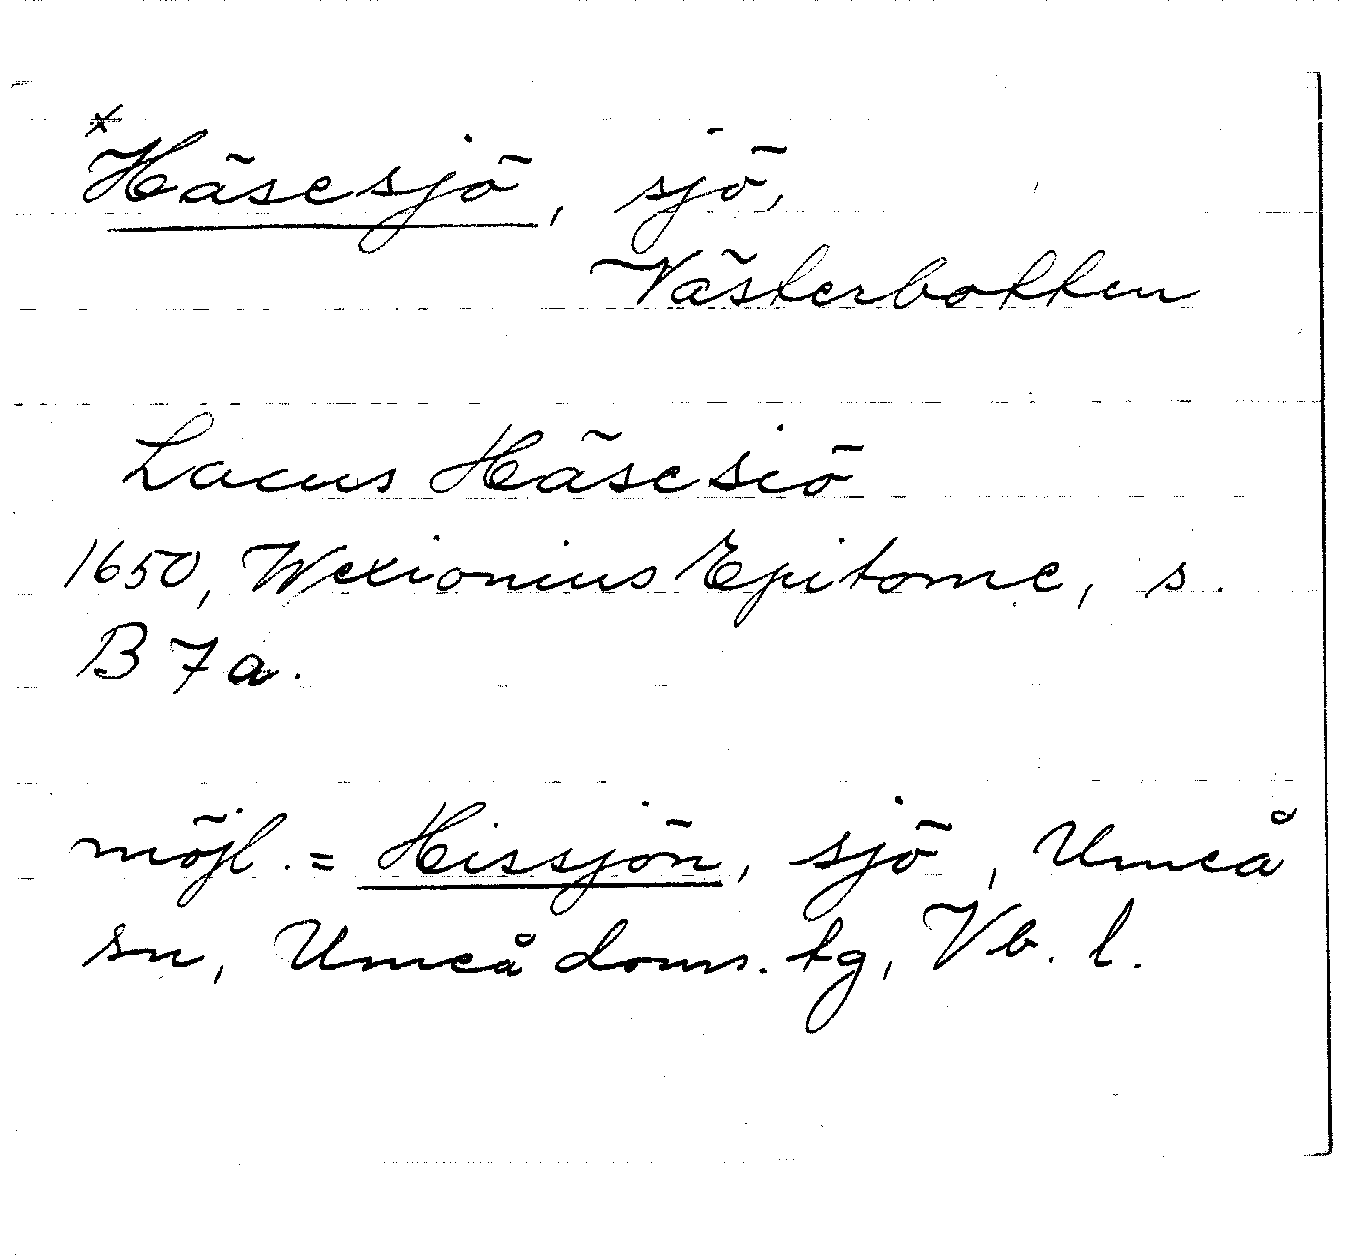 *Häsesjö, sjö,
Västerbotten
Lacus Häsesiö
1650, Wexionius Epitome, s.
B 7a.
möjl. = Hissjön, sjö, Umeå
sn, Umeå doms. tg, Vb. l.